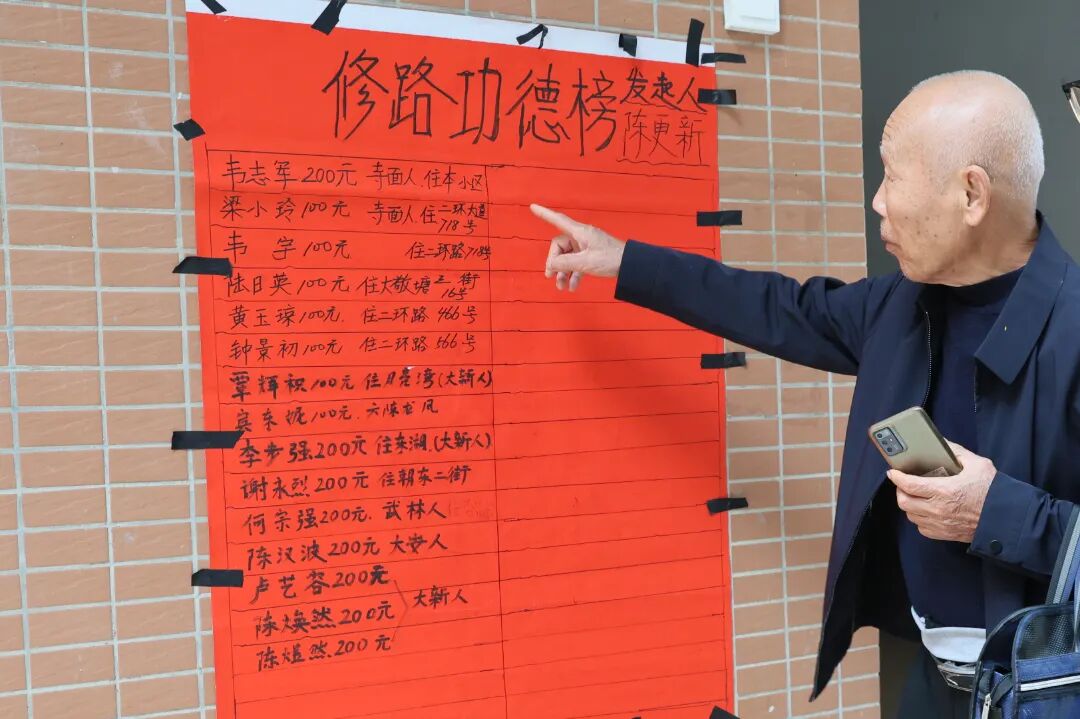 修路功德榜
发起人
陈更新
韦志军 200元 寺面人.住本小区
梁小玲 100元 寺面人住二环大道718号
韦宇 100元 住二环路718号
陆日英 100元 住大敬塘三街16号
黄玉琼 100元. 住二环路466号
钟景初 100元 住二环路566号
覃辉积 100元 住月亮湾(大新人)
宾东妮 100元. 六陈龙凤
李步强 200元 住东湖.(大新人)
谢永烈 200元 住朝东二街
何宗强 200元. 武林人
陈汉波 200元 大安人
卢艺容 200元
大新人
陈焕然 200元
陈煜然. 200元